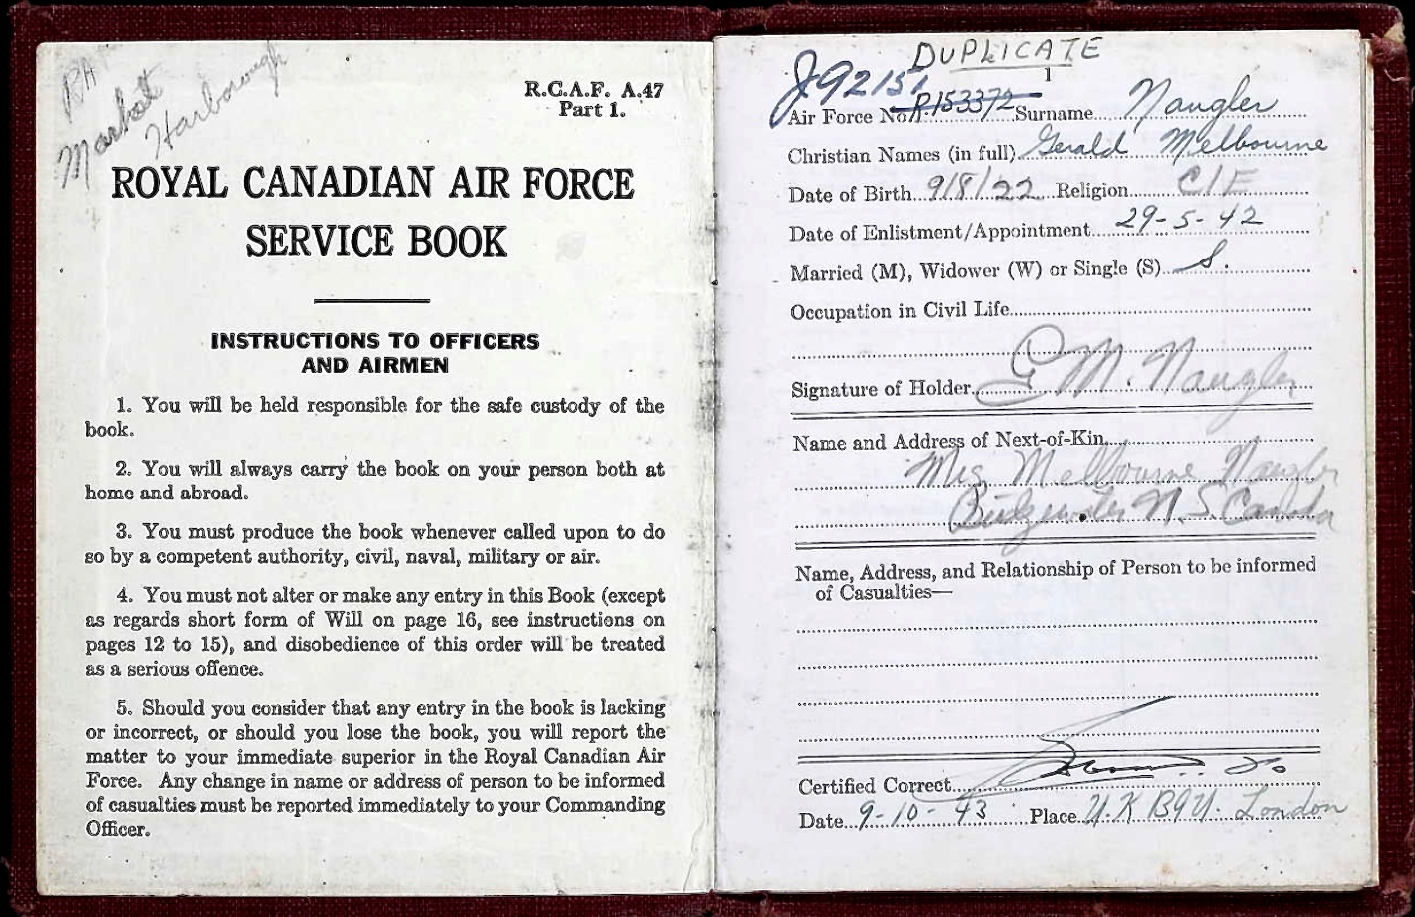 RA
Market
Harborough
R.C.A.F. A.47
Part 1.
ROYAL CANADIAN AIR FORCE
SERVICE BOOK
INSTRUCTIONS TO OFFICERS
AND AIRMEN
1. You will be held responsible for the safe custody of the
book.
2. You will always carry the book on your person both at
home and abroad.
3. You must produce the book whenever called upon to do
so by a competent authority, civil, naval, military or air.
4. You must not alter or make any entry in this Book (except
as regards short form of Will on page 16, see instructions on
pages 12 to 15), and disobedience of this order will be treated
as a serious offence.
5. Should you consider that any entry in the book is lacking
or incorrect, or should you lose the book, you will report the
matter to your immediate superior in the Royal Canadian Air
Force. Any change in name or address of person to be informed
of casualties must be reported immediately to your Commanding
Officer.
DUPLICATE
1
J92151
Air Force No. R153372 Surname Naugler
Christian Names (in full) Gerald Melbourne
Date of Birth 9/8/22 Religion C/E
Date of Enlistment/Appointment 29-5-42
Married (M), Widower (W) or Single (S) S.
Occupation in Civil Life
Signature of Holder G M. Naugler
Name and Address of Next-of-Kin
Mrs Melbourne Naugler
Bridgewater N.S. Canada
Name, Address, and Relationship of Person to be informed
of Casualties—
Certified Correct
Date 9-10-43 Place U.K. London